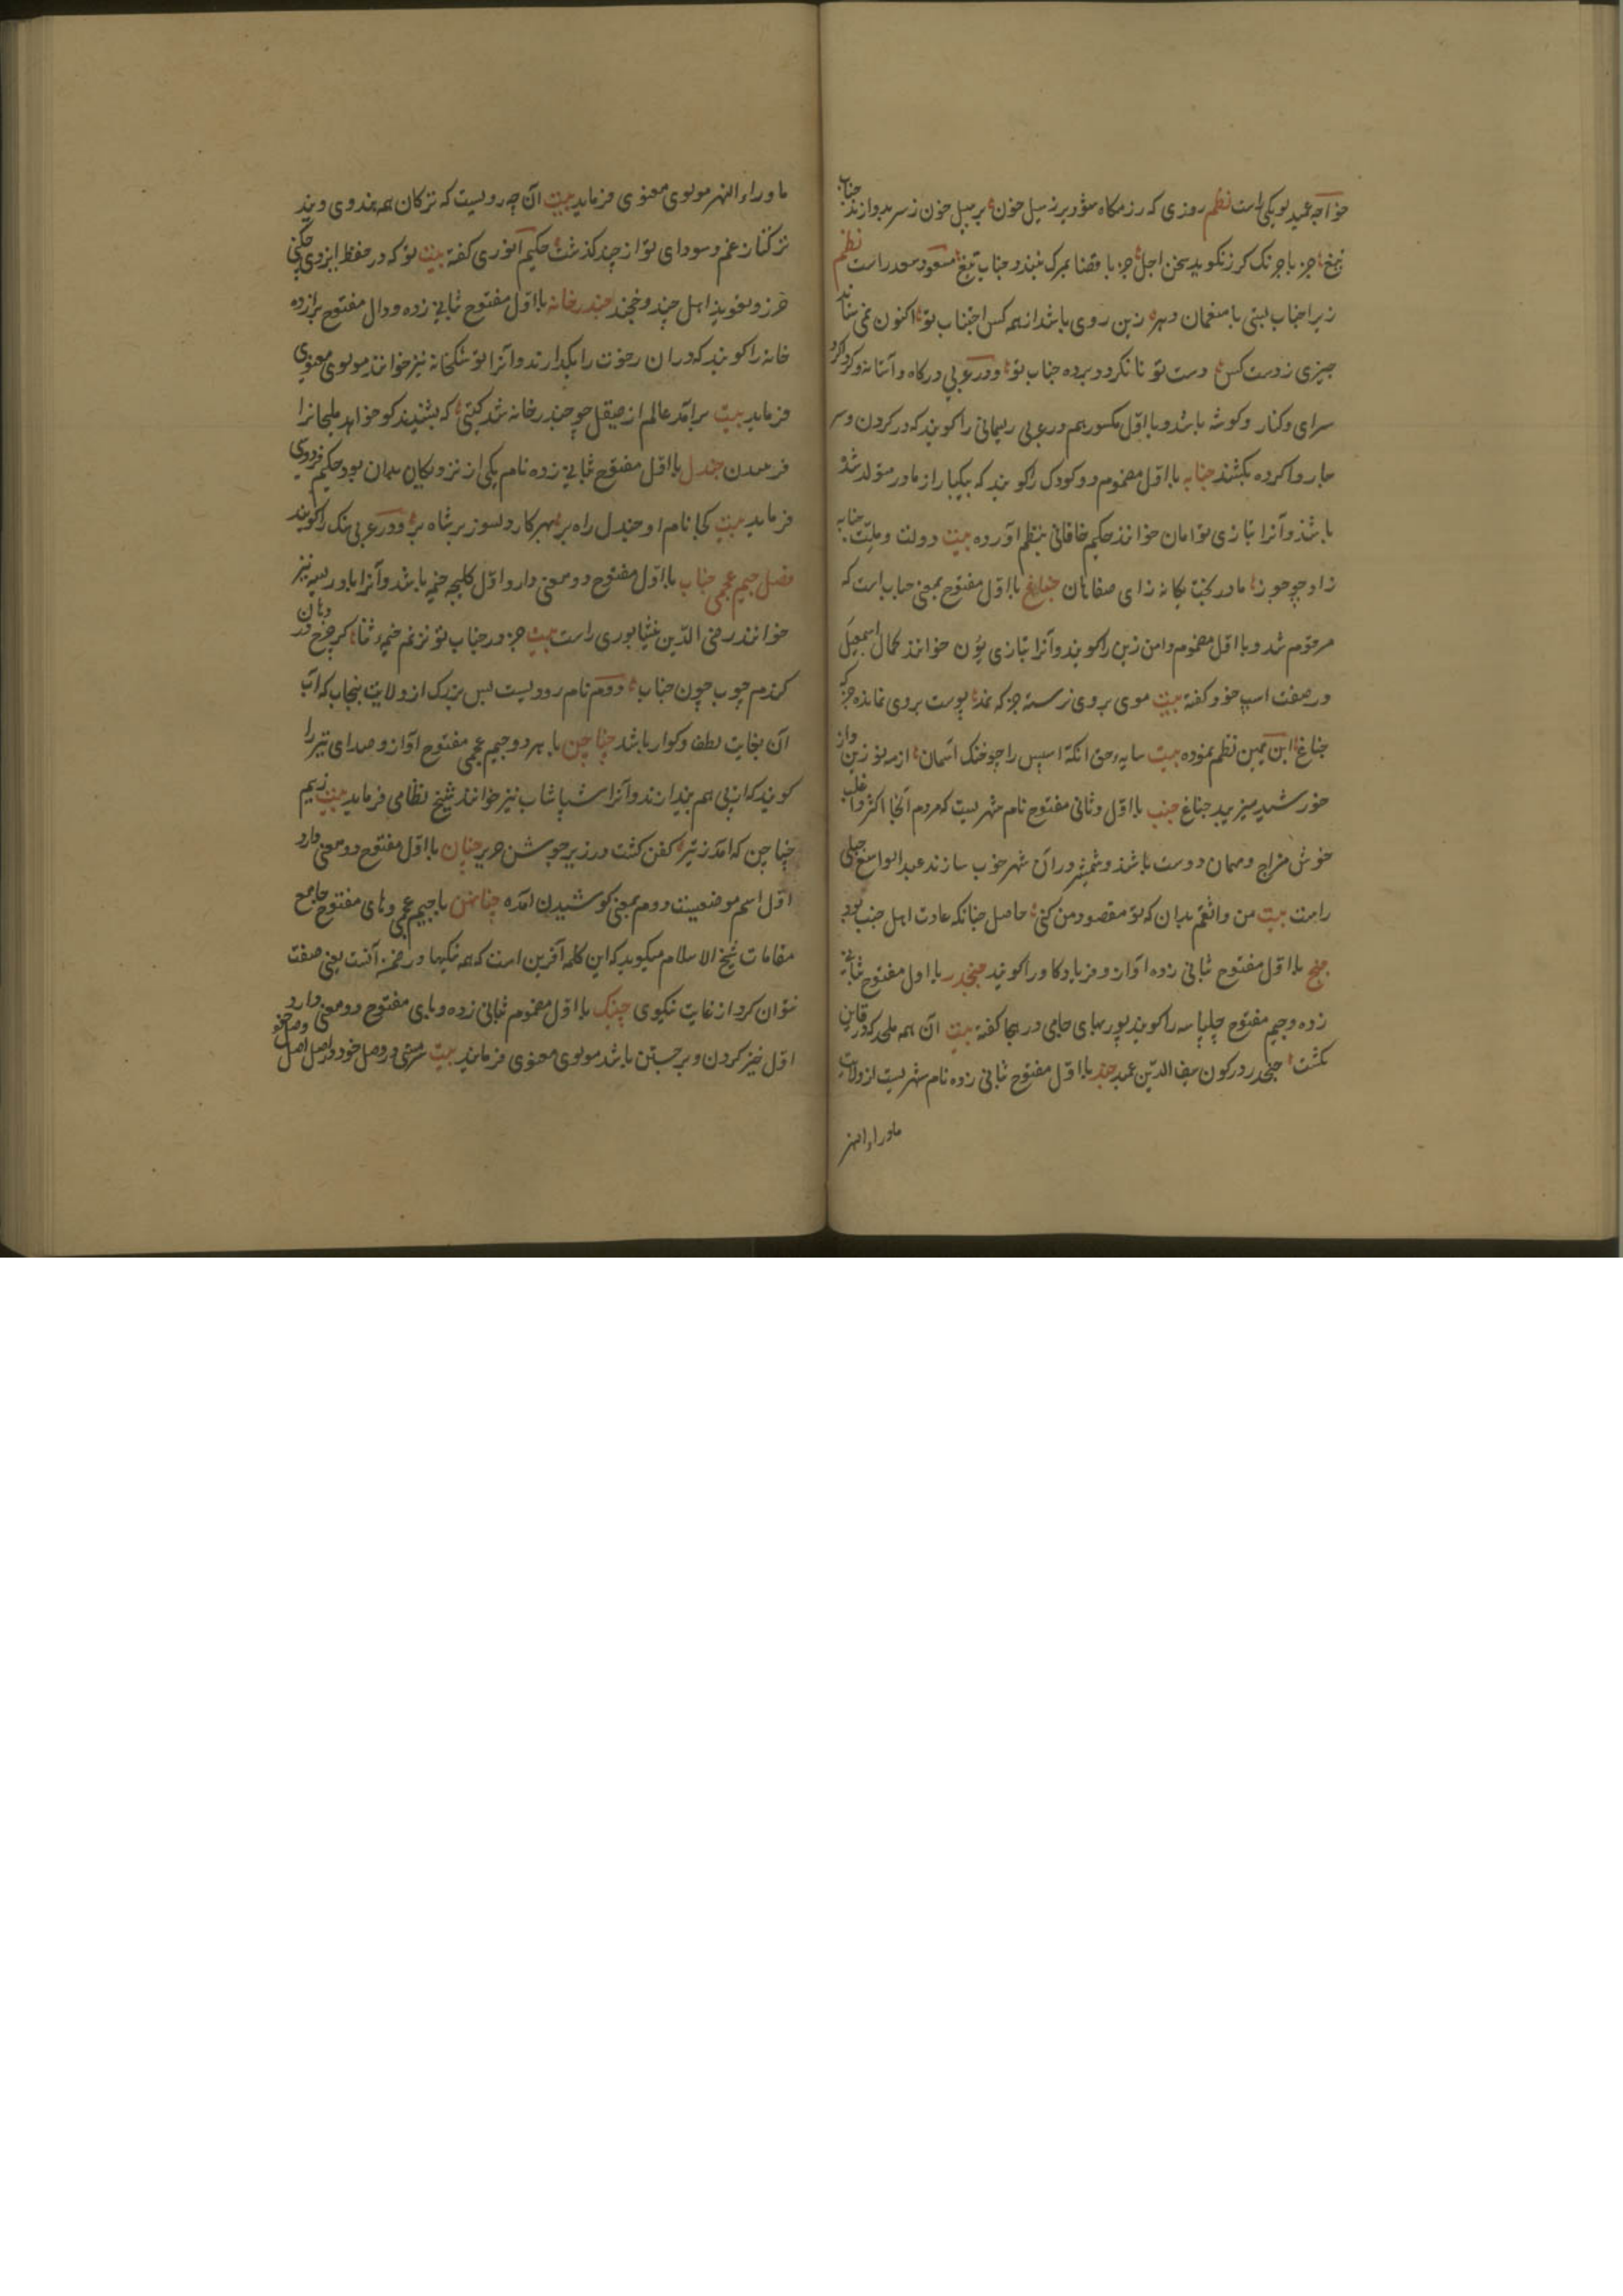 خواجه عمید لوبکی راست نظم روزی که رزمکاه مؤور بر ز سیل خون بر سیل خون ز سر بدوازند جناب
تیغ جز با جرنک کرز نکوید سخن اجل جز با قضا بمرک نبندد جناب تیغ مسعود سعد راست نظم
زیرا جناب لبتی با منعمان دهر زین روی باشد از همه کس اجتناب تو اکنون نمی ستاند
چیزی ز دست کس دست تو تا نکردد برده جناب تو ودر عربی درکاه و آستانه و کرداکرد
سرای وکنار وکوشه باشد وبا اوّل مکسور هم در عربی ریسمانی را کویند که در کردن وسر
چاروا کرده بکشند جنابه با اوّل مضموم دو کودک را کویند که بیکبار از مادر متولد شده
باشند وآنرا بتازی توامان خوانند حکیم خاقانی بنظم آورده بیت دولت وملّت جنابه
زاد چو جوزا مادر بخت یکانه زای صفاهان جناغ با اوّل مفتوح بمعنی جناب است که
مرقوم شد وبا اوّل مضموم دامن زین را کویند وآنرا بتازی یؤن خوانند کمال اسمعیل
در صفت اسپ خود کفته بیت موی بر وی نرسته جز که نمد پوست بر وی نمانده جز که
جناغ ابن یمین نظم نموده بیت سایه حق انکه اسپش را چو خنک آسمان از مه نو زین واز
خورشید میزیبد جناغ جنب با اوّل وثانی مفتوح نام شهریست که مردم آنجا اکثر واغلب
خوش مزاج ومهمان دوست باشند وشمشیر در آن شهر خوب سازند عبد الواسع جبلی
راست بیت من واثقم بدان که تو مقصود من کنی حاصل چنانکه عادت اهل جنب بود
جنج با اوّل مفتوح ثانی زده آواز وفریاد کاو را کویند جنجدر با اول مفتوح ثانی
زده وجیم مفتوح چلپاسه را کویند پور بهای جامی در هجا کفته بیت آن همه ملحد که در قاین
بکشت جنجدر در کون سیف الدّین عمید جند با اوّل مفتوح ثانی زده نام شهریست از ولایت
ماوراء النهر
ماوراء النهر مولوی معنوی فرماید بیت آن چه رویست که ترکان همه هندوی ویند
ترکتاز غم وسودای تو از چند کذشت حکیم انوری کفته بیت تو که در حفظ ایزدی چکنی
حرز وتعویذ اهل جند وخجند جندرخانه با اوّل مفتوح ثانی زده ودال مفتوح برازده
خانه را کویند که در ان رخوت را بکذارند وآنرا توشکخانه نیز خوانند مولوی معنوی
فرماید بیت برآمد عالم از صیقل چو جندرخانه شد کیتی که بشنیند کو خواهد ملیحانرا
فرمیدن جندل با اوّل مفتوح ثانی زده نام یکی از نزدیکان فریدون بود حکیم فردوسی
فرماید بیت کجا نام او جندل راه بر بهر کار دلسوز بر شاه بر ودر عربی سنک را کویند
فصل جیم عجمی چناب با اوّل مفتوح دو معنی دارد اوّل کلیچه خیمه باشد وآنرا بادریسه نیز
خوانند رضی الدّین نیشابوری راست بیت جز در چناب تو نزنم خیمه ثنا کر چرخ در دهان
کندم چوب چون چناب دوّم نام رودیست بس بزرک از ولایت پنجاب که آب
آن بغایت لطف وکوار باشد چپاچپ با هر دو جیم عجمی مفتوح آواز وصدای تیر را
کویند که از پی هم بیندازند وآنرا شپاشاپ نیز خوانند شیخ نظامی فرماید بیت زیم
چپاچپ که امد ز تیر کفن کشت در زیر جوشن حریر چنان با اوّل مفتوح دو معنی دارد
اوّل اسم موضعیست دوم بمعنی کوشیدن آمده چناهنن با جیم عجمی وهای مفتوح جامع
مقامات شیخ الاسلام میکوید که این کلمه آفرین است که همه نیکیها در ضمن آنست یعنی صفت
نتوان کرد از غایت نیکوی چنبک با اوّل مضموم ثانی زده وبای مفتوح دو معنی دارد
اوّل خیز کردن وبر جستن باشد مولوی معنوی فرماید بیت